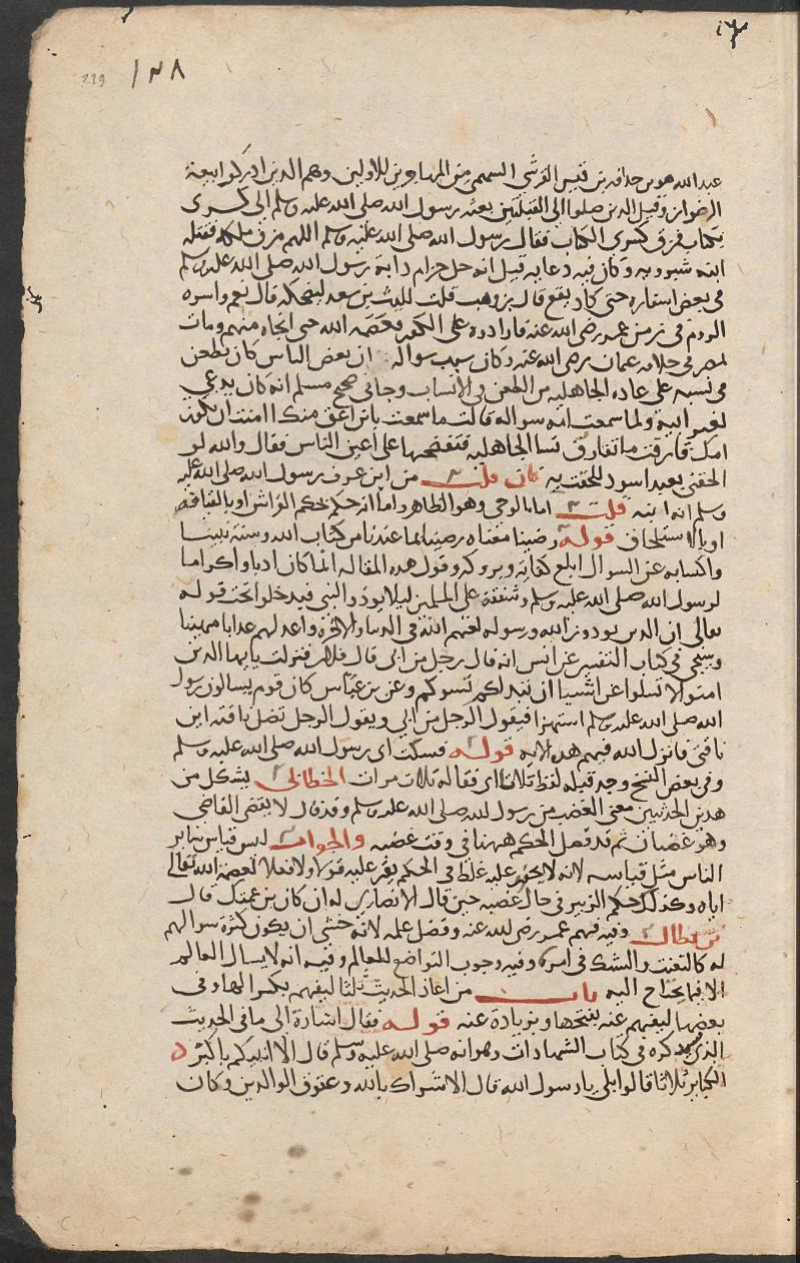 ١٢٨ 219
عبد الله هو بن حذافه بن قيس القرشي السهمي من المهاجرين للاولين وهم الذين ادركوا بيعة
الرضوان وقيل الذين صلوا الى القبلتين بعثه رسول الله صلى الله عليه وسلم الى كسرى
بكتاب فمزق كسرى الكتاب فقال رسول الله صلى الله عليه وسلم اللهم مزق ملكه فقتله
ابنه شيرويه وكان فيه دعابه قيل انه حل حزام دابة رسول الله صلى الله عليه وسلم
في بعض اسفاره حتى كاد يقع قال بن وهب قلت لليث بن سعد ليضحكه قال نعم واسره
الروم في زمن عمر رضي الله عنه فارادوه على الكفر فعصمه الله حتى انجاه منهم ومات
بمصر في خلافه عثمان رضي الله عنه وكان سبب سواله ان بعض الناس كان يطعن
في نسبه على عاده الجاهليه من الطعن في الانساب وجا في صحيح مسلم انه كان يدعي
لغير ابيه ولما سمعت امه سواله قالت ما سمعت بابن اعق منك اامنت ان تكون
امك قارفت ما تقارف نسا الجاهليه فتفضحها على اعين الناس فقال والله لو
الحقني بعبد اسود للحقت به فان قلت من اين عرف رسول الله صلى الله عليه
وسلم انه ابنه قلت اما بالوحي وهو الظاهر واما انه حكم بحكم الفراش او بالقيافه
او بالاستلحاق قوله رضينا معناه رضينا بما عندنا من كتاب الله وسنة نبينا
واكتفينا به عن السوال ابلغ كفاية وبروكه وقوله هذه المقاله انما كان ادبا واكراما
لرسول الله صلى الله عليه وسلم وشفقة على المسلمين ليلا يوذوا النبي فيدخلوا تحت قوله
تعالى ان الذين يوذون الله ورسوله لعنهم الله في الدنيا والاخرة واعد لهم عذابا مهينا
وسيجي في كتاب التفسير عن انس انه قال رجل من ابي قال فلان فنزلت يا ايها الذين
امنوا لا تسلوا عن اشيا ان تبد لكم تسوكم وعن بن عباس كان قوم يسالون رسول
الله صلى الله عليه وسلم استهزا فيقول الرجل من ابي ويقول الرجل تضل ناقته اين
ناقتي فانزل الله فيهم هذه الايه قوله فسكت اي رسول الله صلى الله عليه وسلم
وفي بعض النسخ وجد قبله لفظ ثلاثا اي فقاله ثلاث مرات الخطابي يشكل من
هذين الحديثين معنى الغضب من رسول الله صلى الله عليه وسلم وقد قال لا يقضي القاضي
وهو غضبان ثم قد فصل الحكم ههنا في وقت غضبه والجواب ليس قياس ساير
الناس مثل قياسه لانه لا يجوز عليه غلط في الحكم يقر عليه قولا ولا فعلا لعصمة الله تعالى
اياه وكذلك حكم الزبير في حال غضبه حين قال الانصاري له ان كان بن عمتك قال
بن بطال وفيه فهم عمر رضي الله عنه وفضل علمه لانه خشي ان يكون كثرة سوالهم
له كالتعنت والشك في امره وفيه وجوب التواضع للعالم وفيه انه لا يسال العالم
الا فيما يحتاج اليه باب من اعاد الحديث ثلثا ليفهم بكسر الها وفي
بعضها ليفهم عنه بفتحها وبزيادة عنه قوله فقال اشارة الى ما في الحديث
الذي ذكره في كتاب الشهادات وهو انه صلى الله عليه وسلم قال الا انبيكم باكبر
الكباير ثلاثا قالوا بلى يا رسول الله قال الاشراك بالله وعقوق الوالدين وكان